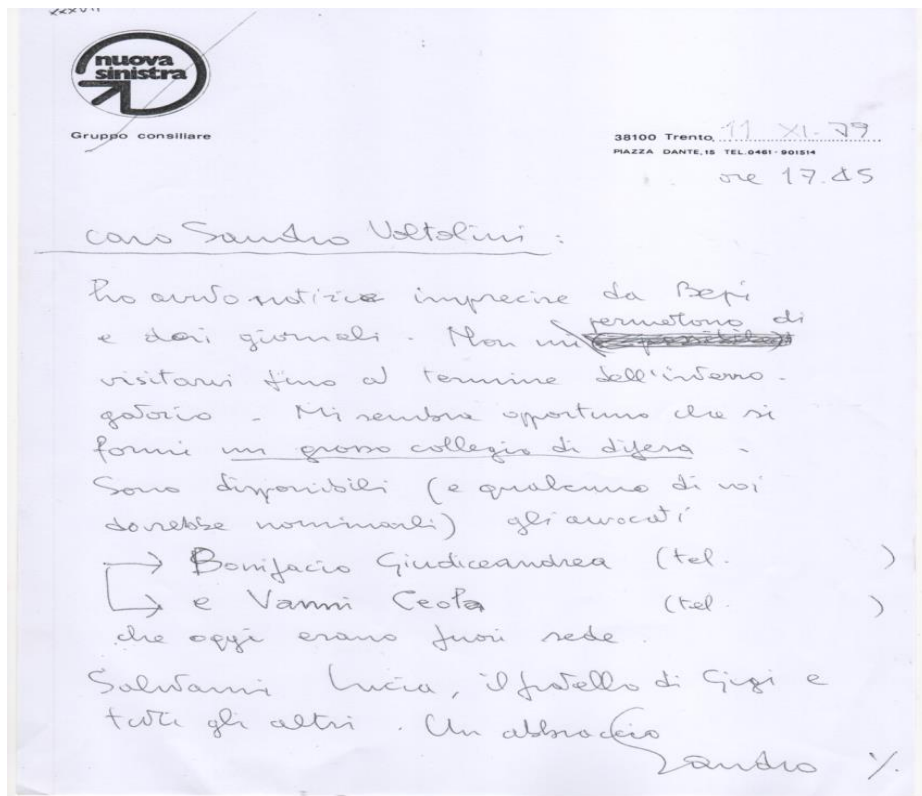 XXXVII
nuova
sinistra
Gruppo consiliare
38100 Trento, 11 XI-79
PIAZZA DANTE, 15 TEL. 0461-901514
ore 17.45
caro Sandro Voltolini :
ho avuto notizie imprecise da Bepi
e dai giornali. Non mi permettono di
visitarvi fino al termine dell'interro-
gatorio. Mi sembra opportuno che si
formi un grosso collegio di difesa.
Sono disponibili (e qualcuno di voi
dovrebbe nominarli) gli avvocati
→ Bonifacio Giudiceandrea (tel. )
→ e Vanni Ceola (tel. )
che oggi erano fuori sede.
Salutami Lucia, il fratello di Gigi e
tutti gli altri. Un abbraccio
Sandro %